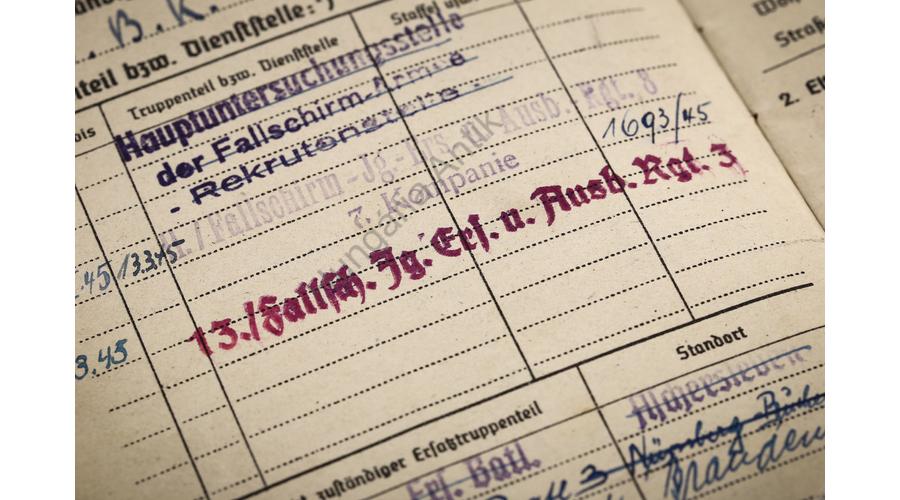 B. K.
nteil bzw. Dienststelle: *)
Truppenteil bzw. Dienststelle
Staffel
bis
Hauptuntersuchungsstelle
der Fallschirm-Armee
- Rekrutenstelle -
II./Fallschirm-Jg.-Ers. u. Ausb. Rgt. 8
7. Kompanie
1693/45
.45 13.3.45
13./Fallsch. Jg. Ers. u. Ausb. Rgt. 3
3.45
Straß
2. Eh
Standort
zuständiger Ersatztruppenteil
Aschersleben
Ers. Batl.
3 Nürnberg